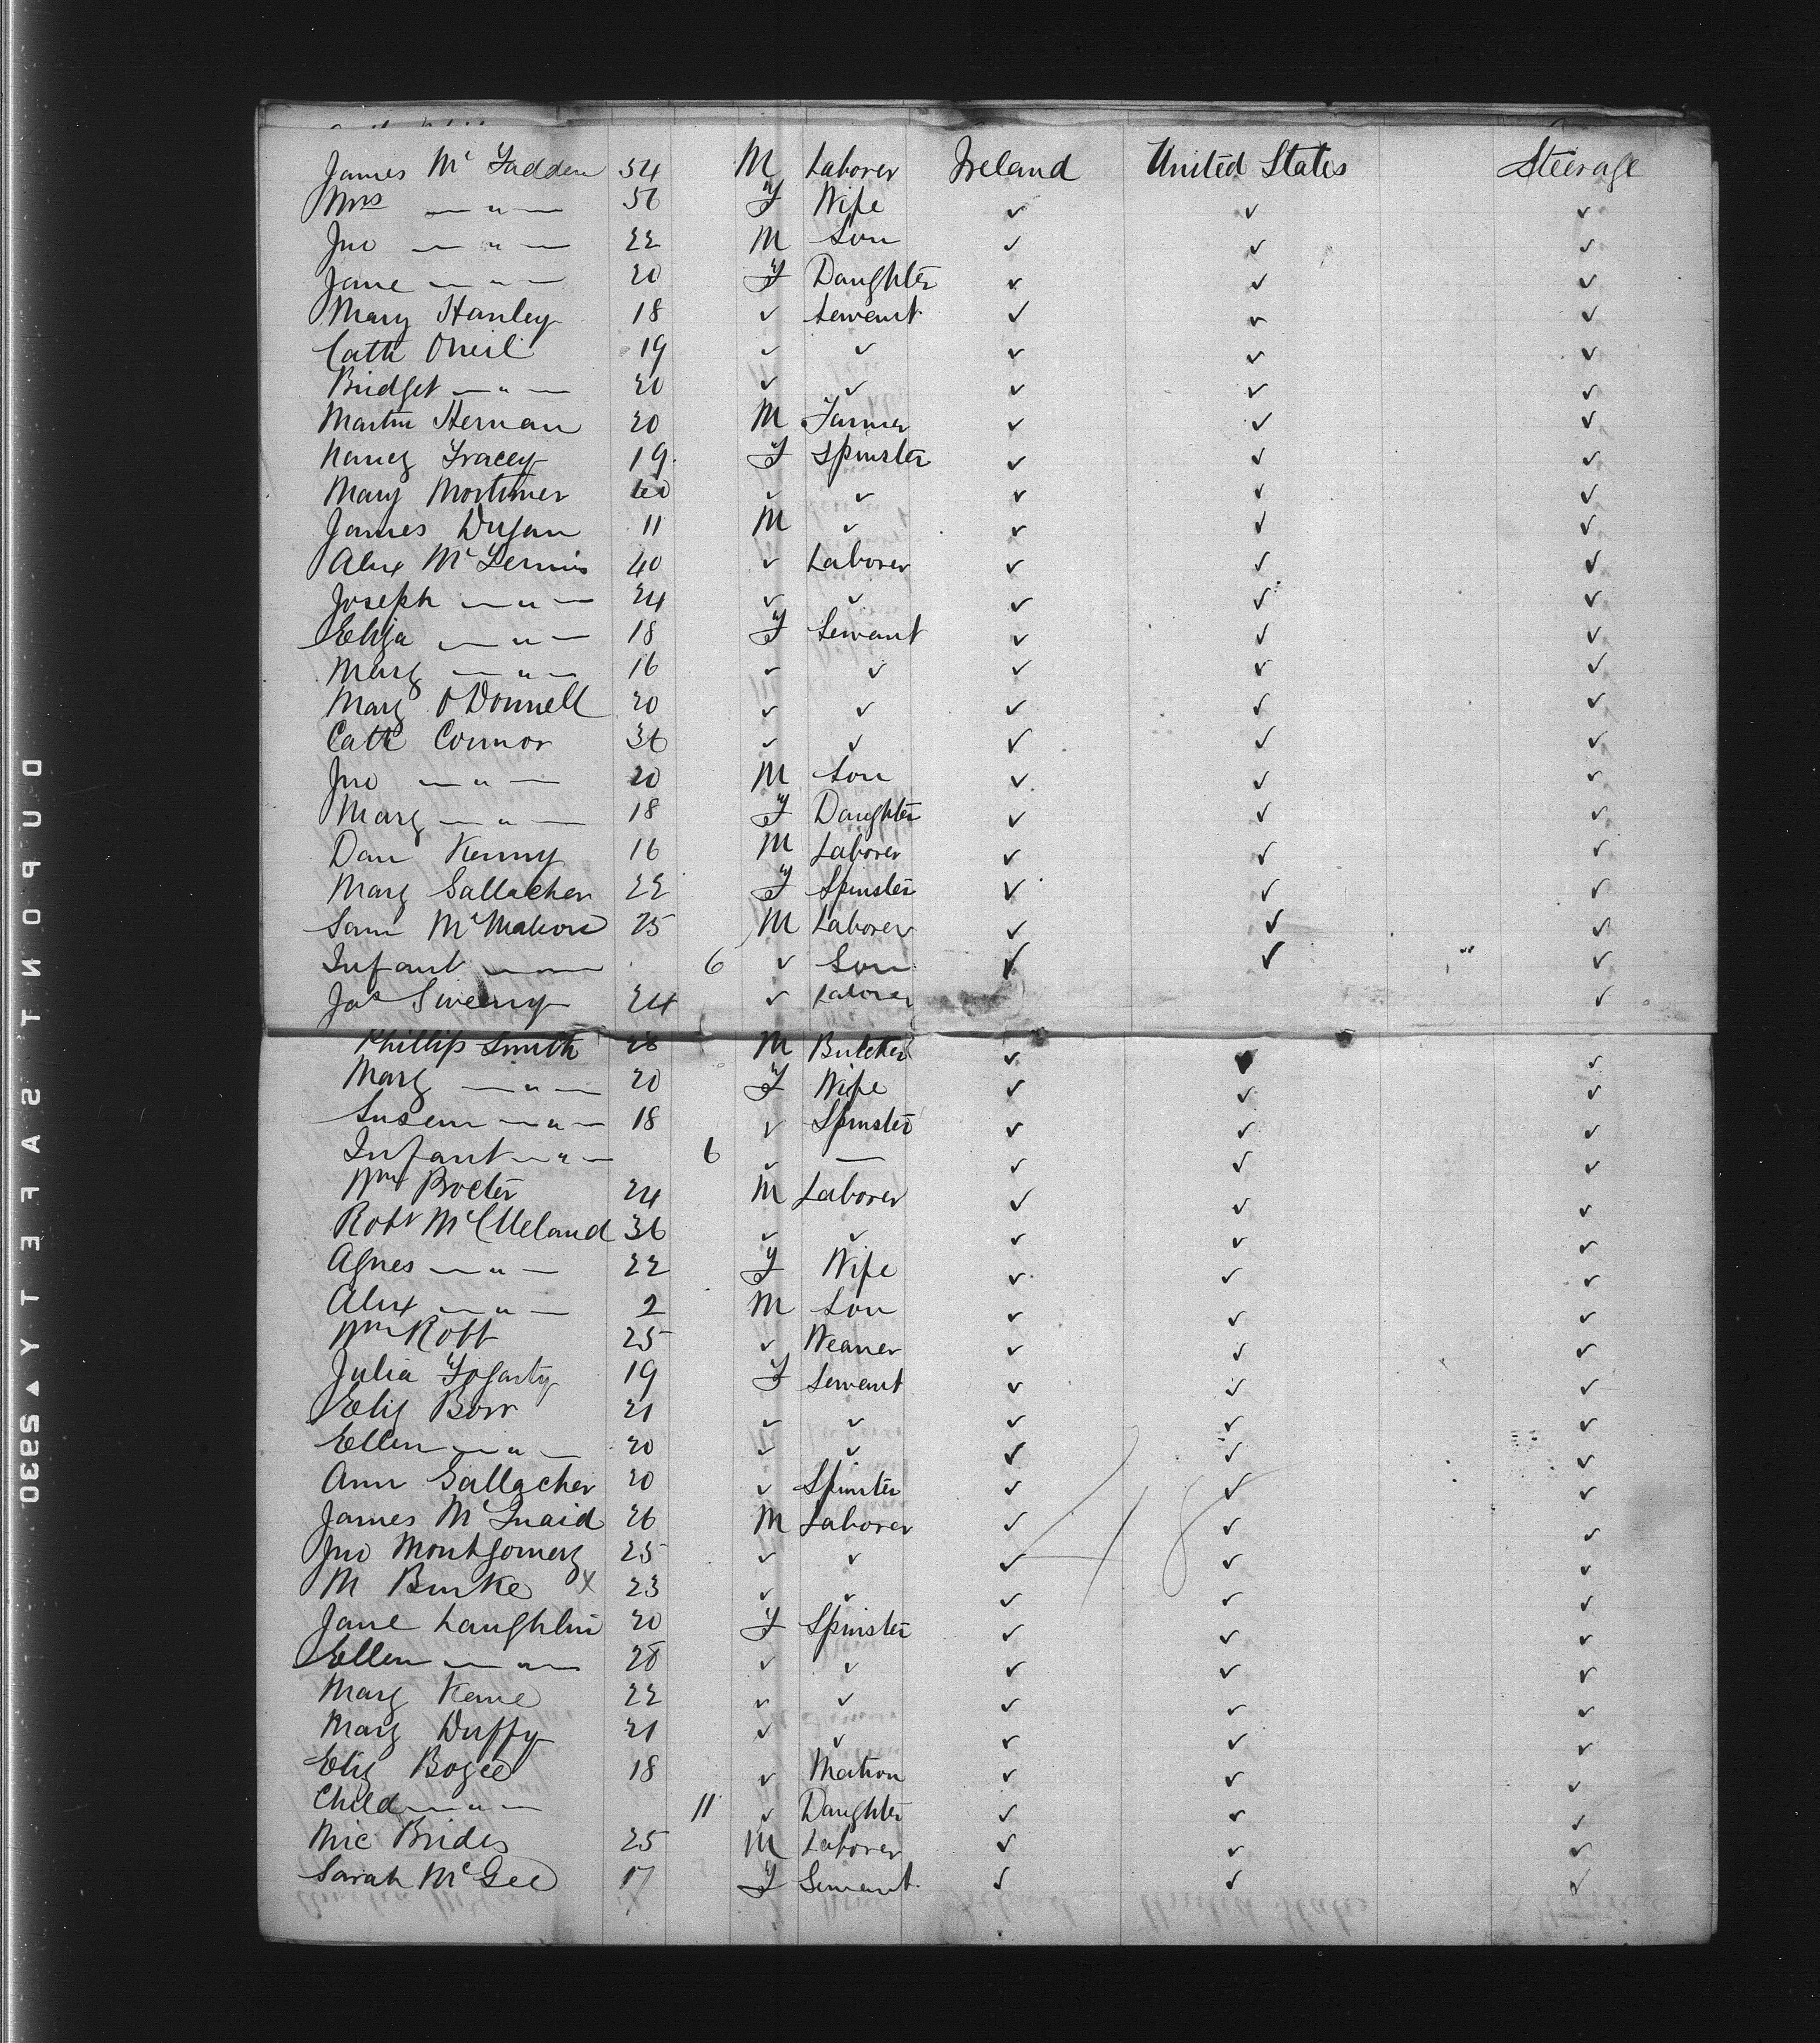 James Mc Fadden 54 M Laborer Ireland United States Steerage
Mrs — " — 56 F Wife ✓ ✓ ✓
Jno — " — 22 M Son ✓ ✓ ✓
Jane — " — 20 F Daughter ✓ ✓ ✓
Mary Hanley 18 ✓ Servant ✓ ✓ ✓
Cath Oneil 19 ✓ ✓ ✓ ✓ ✓
Bridget — " — 20 ✓ ✓ ✓ ✓ ✓
Martin Hernan 20 M Farmer ✓ ✓ ✓
Nancy Tracey 19 F Spinster ✓ ✓ ✓
Mary Mortimer ✓ ✓ ✓ ✓ ✓
James Dugan 11 M ✓ ✓ ✓ ✓
Alex Mc 40 ✓ Laborer ✓ ✓ ✓
Joseph — " — 24 ✓ ✓ ✓ ✓ ✓
Eliza — " — 18 F Servant ✓ ✓ ✓
Marg — " — 16 ✓ ✓ ✓ ✓ ✓
Mary O'Donnell 20 ✓ ✓ ✓ ✓ ✓
Cath Connor 36 ✓ ✓ ✓ ✓ ✓
Jno — " — 20 M Son ✓ ✓ ✓
Marg — " — 18 F Daughter ✓ ✓ ✓
Dan Kenny 16 M Laborer ✓ ✓ ✓
Marg Gallacher 22 F Spinster ✓ ✓ ✓
Sam McMahon 25 M Laborer ✓ ✓ ✓
Infant — " — 6 ✓ Son ✓ ✓ ✓
Jas Sweeny 24 ✓ Laborer ✓
Phillip Smith 28 M Butcher ✓ ✓ ✓
Marg — " — 20 F Wife ✓ ✓ ✓
Susean — " — 18 ✓ Spinster ✓ ✓ ✓
Infant — " — 6 ✓ — ✓ ✓ ✓
Wm Procter 24 M Laborer ✓ ✓ ✓
Robt McClleland 36 ✓ ✓ ✓ ✓ ✓
Agnes — " — 22 F Wife ✓ ✓ ✓
Alex — " — 2 M Son ✓ ✓ ✓
Wm Robb 25 ✓ Weaver ✓ ✓ ✓
Julia Fogarty 19 F Servant ✓ ✓ ✓
Eliz Barr 21 ✓ ✓ ✓ ✓ ✓
Ellen — " — 20 ✓ ✓ ✓ ✓ ✓
Ann Gallacher 20 ✓ Spinster ✓ ✓ ✓
James McQuaid 26 M Laborer ✓ ✓ ✓
48
Jno Montgomery 25 ✓ ✓ ✓ ✓ ✓
M Burke X 23 ✓ ✓ ✓ ✓ ✓
Jane Laughlin 20 F Spinster ✓ ✓ ✓
Ellen — " — 28 ✓ ✓ ✓ ✓ ✓
Marg Kane 22 ✓ ✓ ✓ ✓ ✓
Marg Duffy 21 ✓ ✓ ✓ ✓ ✓
Eliz 18 ✓ Matron ✓ ✓ ✓
Child — " — 11 ✓ Daughter ✓ ✓ ✓
Mic Brides 25 M Laborer ✓ ✓ ✓
Sarah McGee 17 F Servant ✓ ✓ ✓
DUPONT SAFETY ▲ 52930